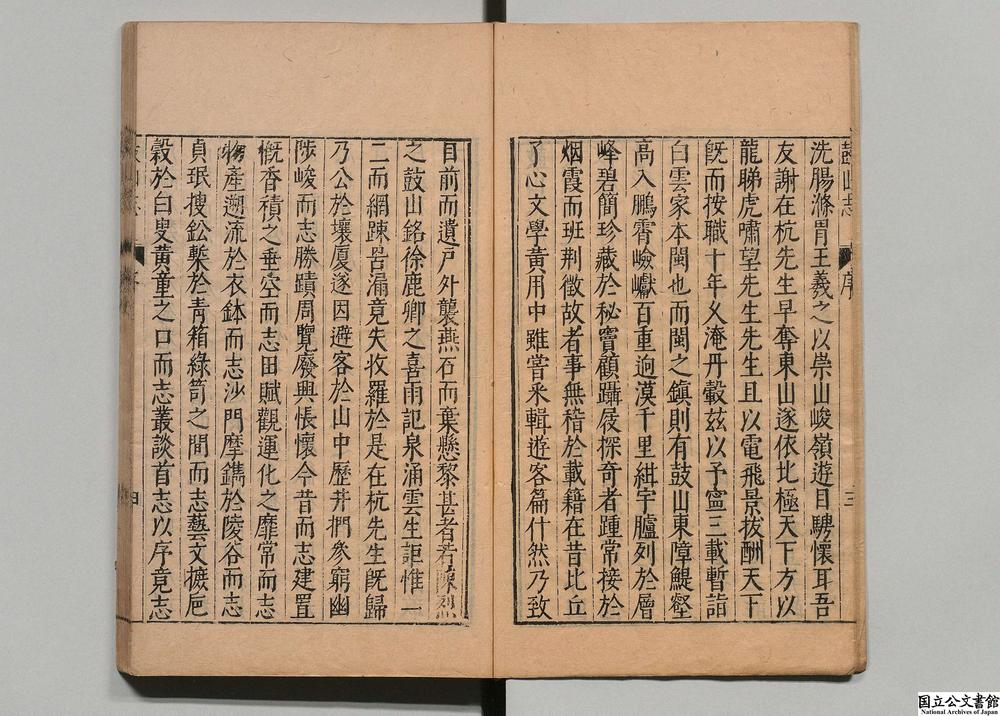 鼓山志
序
三
洗腸滌胃王羲之以崇山峻嶺遊目騁懷耳吾
友謝在杭先生早奪東山遂依北極天下方以
龍睇虎嘯望先生先生且以電飛景拔酬天下
旣而按職十年久淹丹轂茲以予寧三載暫詣
白雲家本閩也而閩之鎮則有鼓山東障鯷壑
高入鵬霄嶮巘百重逈漠千里紺宇臚列於層
峰碧簡珍藏於秘竇顧躡屐探奇者踵常接於
烟霞而班荆徵故者事無稽於載籍在昔比丘
了心文學黃用中雖嘗采輯遊客篇什然乃致
目前而遺戶外襲燕石而棄懸黎甚者若陳烈
之鼓山銘徐鹿卿之喜雨記泉涌雲生詎惟一
二而網踈罟漏竟失收羅於是在杭先生旣歸
乃公於壤廈遂因避客於山中歷井捫參窮幽
陟峻而志勝蹟周覽廢興悵懷今昔而志建置
慨香積之垂空而志田賦觀運化之靡常而志
物產遡流於衣鉢而志沙門摩鐫於陵谷而志
貞珉搜鉛槧於靑箱綠笥之間而志藝文摭巵
穀於白叟黃童之口而志叢談首志以序竟志
四
国立公文書館
National Archives of Japan